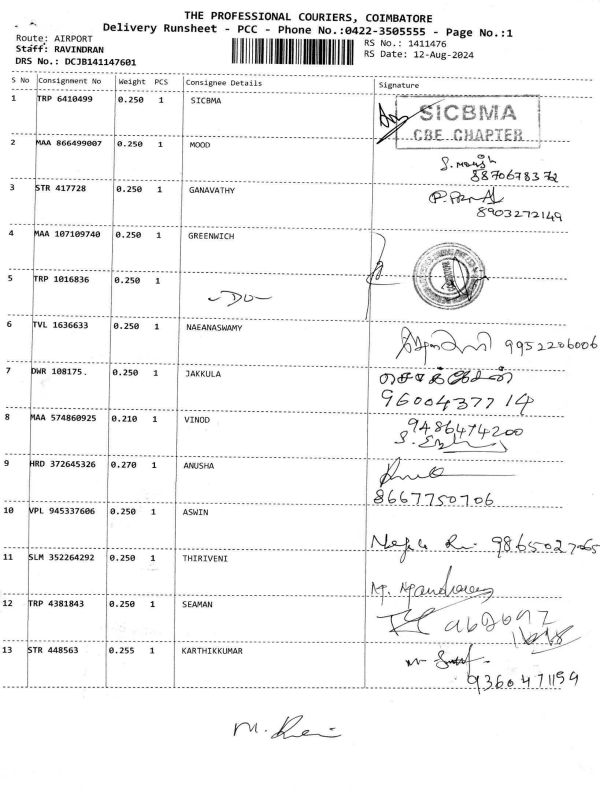 THE PROFESSIONAL COURIERS, COIMBATORE
Delivery Runsheet - PCC - Phone No.:0422-3505555 - Page No.:1
Route: AIRPORT
Staff: RAVINDRAN
DRS No.: DCJB141147601
RS No.: 1411476
RS Date: 12-Aug-2024
S No Consignment No Weight PCS Consignee Details Signature
1 TRP 6410499 0.250 1 SICBMA
SICBMA
CBE CHAPTER
2 MAA 866499007 0.250 1 MOOD
8870678372
3 STR 417728 0.250 1 GANAVATHY
8903272149
4 MAA 107109740 0.250 1 GREENWICH
5 TRP 1016836 0.250 1 -DO-
6 TVL 1636633 0.250 1 NAEANASWAMY
9952206006
7 DWR 108175. 0.250 1 JAKKULA
9600437714
8 MAA 574860925 0.210 1 VINOD
9486474200
9 HRD 372645326 0.270 1 ANUSHA
8667750706
10 VPL 945337606 0.250 1 ASWIN
9865027065
11 SLM 352264292 0.250 1 THIRIVENI
12 TRP 4381843 0.250 1 SEAMAN
13 STR 448563 0.255 1 KARTHIKKUMAR
9360471159